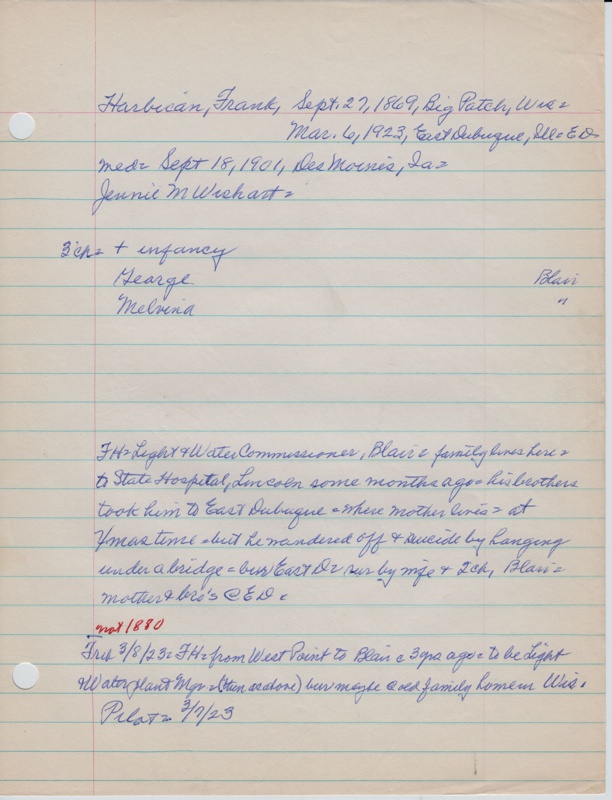 Harbican, Frank, Sept. 27, 1869, Big Patch, Wis=
Mar. 6, 1923, East Dubuque, Ill= ED=
med= Sept 18, 1901, Des Moines, Ia=
Jennie M Wishart=
3 ch= + infancy
George Blair
Melvina "
FH= Light & Water Commissioner, Blair= family lives here=
to State Hospital, Lincoln some months ago= his brothers
took him to East Dubuque = where mother lives= at
Xmas time = but he wandered off & suicide by hanging
under a bridge = bur East D= sur by wife & 2 ch, Blair=
mother & bro's @ E D.
not 1880
Trib 3/8/23= FH= from West Point to Blair c 3 yrs ago= to be Light
& Water plant Mgr= (then as above) bur maybe @ old family home in Wis.
Pilot= 3/7/23